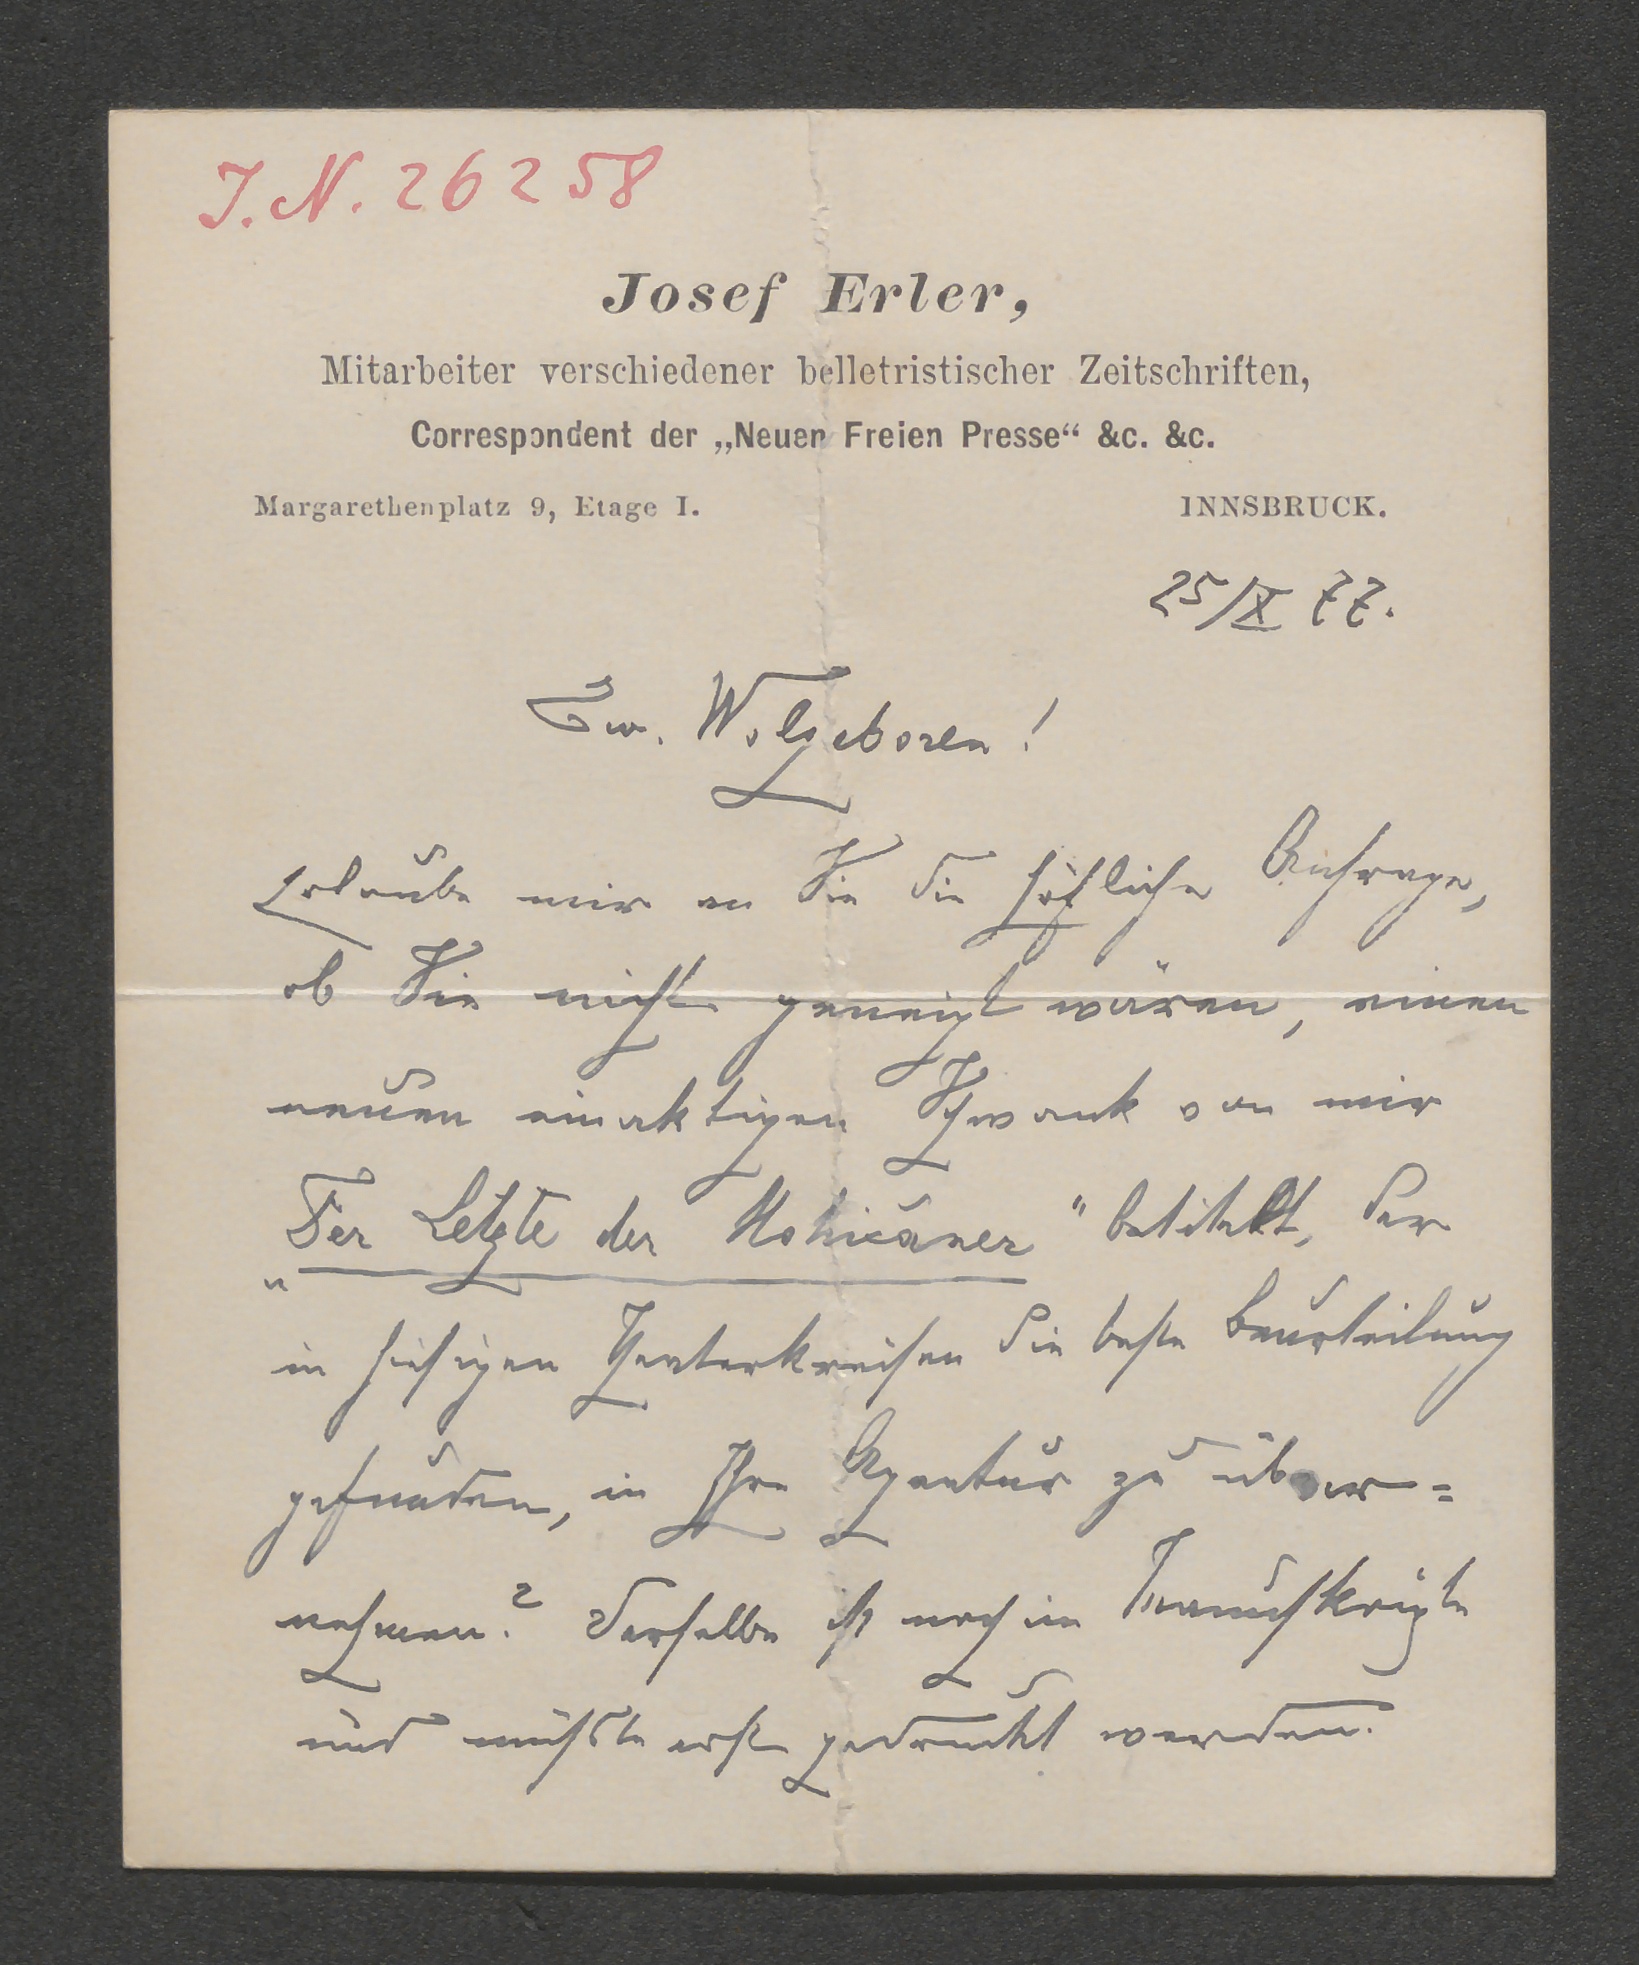 J. N. 26258
Josef Erler,
Mitarbeiter verschiedener belletristischer Zeitschriften,
Correspondent der „Neuen Freien Presse“ &c. &c.
Margarethenplatz 9, Etage I. INNSBRUCK.
25/X 77.
Ew. Wolgeboren!
Erlaube mir an Sie die höfliche Anfrage,
ob Sie nicht geneigt wären, einen
neuen einaktigen Schwank von mir
„Der Letzte der Mohicaner" betitelt, der
in hiesigen Theaterkreisen die beste Beurteilung
gefunden, in Ihre Agentur zu über=
nehmen? Derselbe ist noch im Manuskripte
und müsste erst gedruckt werden.